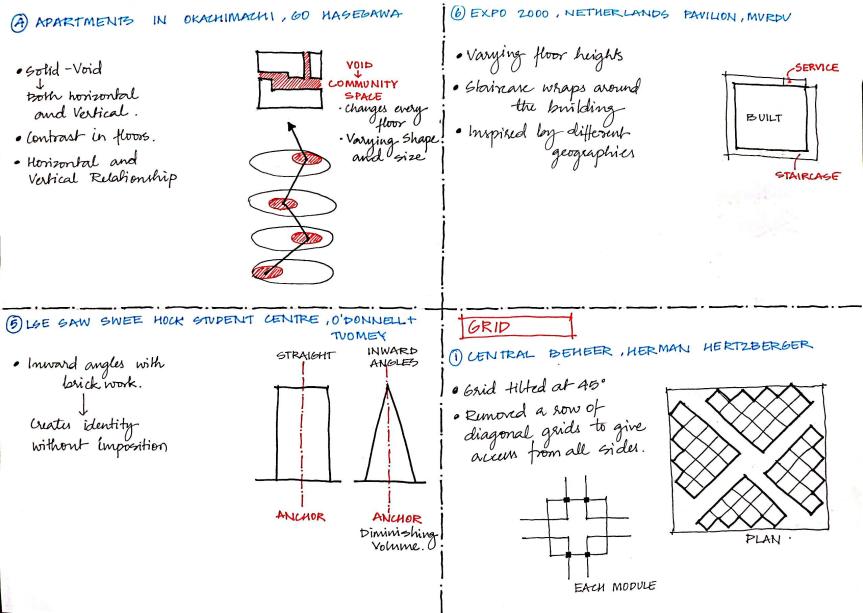 4 APARTMENTS IN OKACHIMACHI, GO HASEGAWA
• Solid-Void
↓
Both horizontal
and Vertical.
• Contrast in floors.
• Horizontal and
Vertical Relationship
VOID
↓
COMMUNITY
SPACE
• Changes every
floor
• Varying Shape
and size
6 EXPO 2000, NETHERLANDS PAVILION, MVRDU
• Varying floor heights
• Staircase wraps around
the building
• Inspired by different
geographies
SERVICE
BUILT
STAIRCASE
5 LSE SAW SWEE HOCK STUDENT CENTRE, O'DONNELL+
TUOMEY
• Inward angles with
brick work.
↓
Creates identity
without imposition
STRAIGHT
ANCHOR
INWARD
ANGLES
ANCHOR
Diminishing
Volume.
GRID
1 CENTRAL BEHEER, HERMAN HERTZBERGER
• Grid tilted at 45°
• Removed a row of
diagonal grids to give
access from all sides.
EACH MODULE
PLAN.